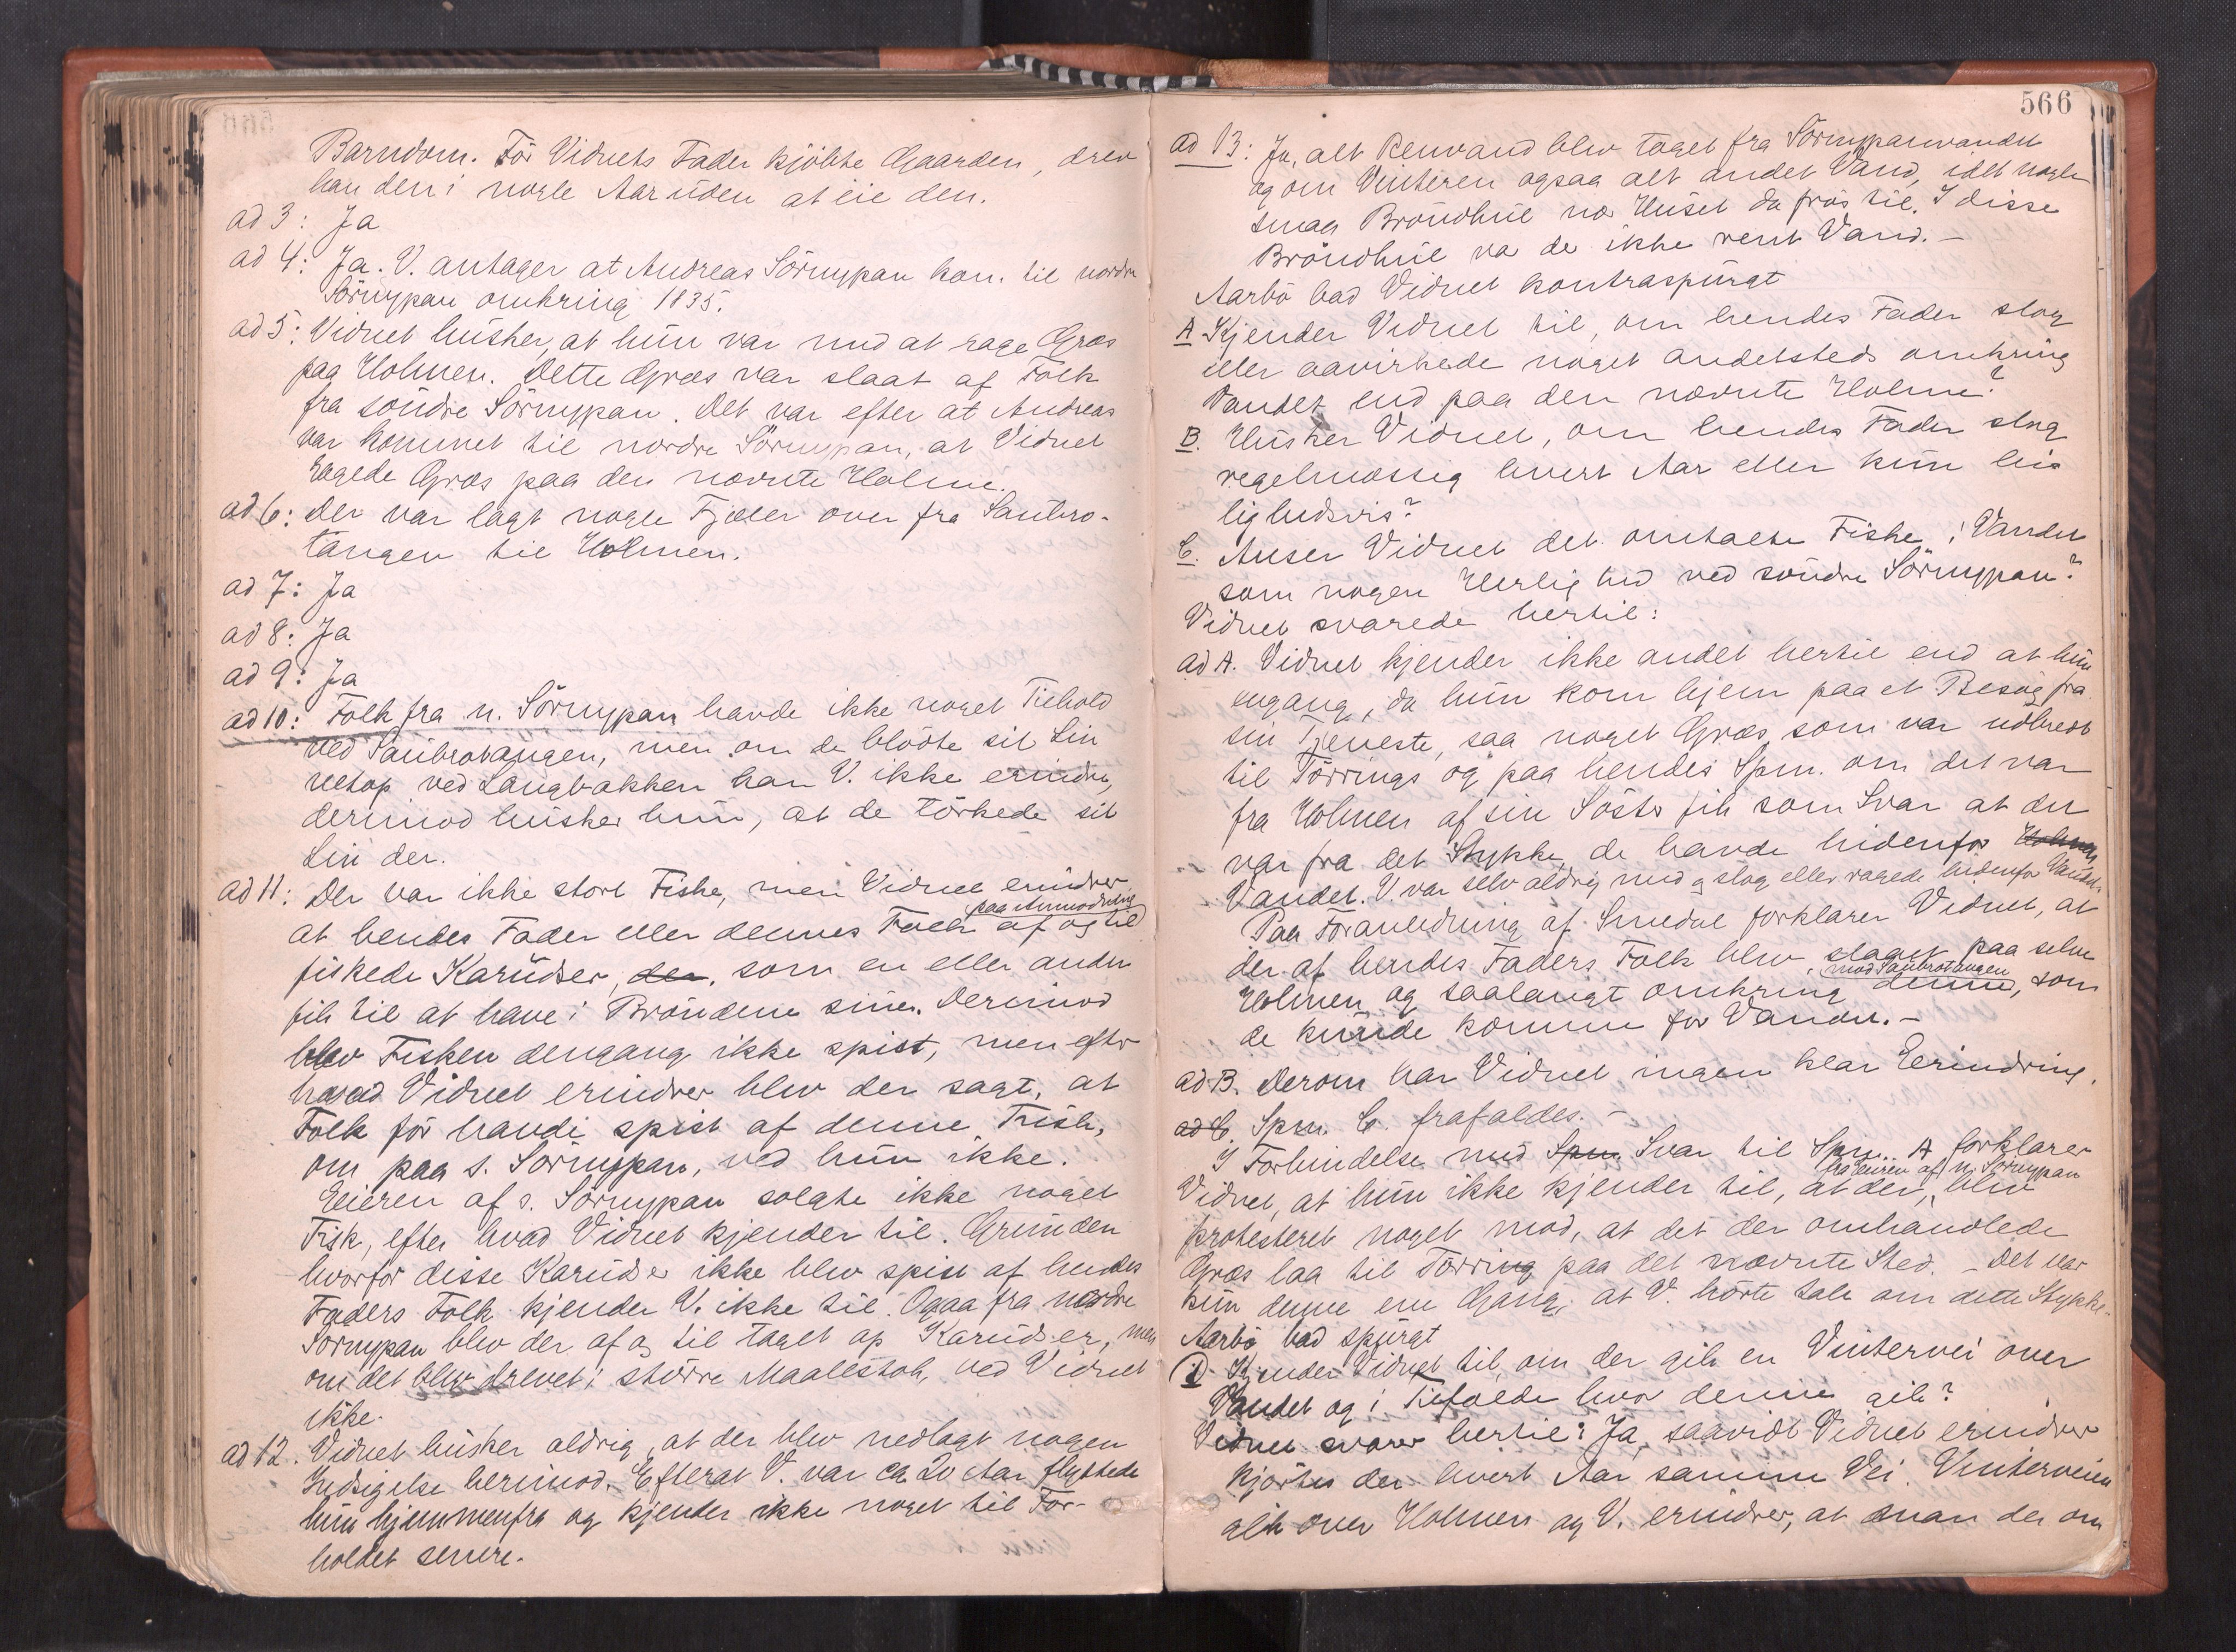 Barndom. För Vidnets Fader kjöbte Gaarden, drev
han den i nogle Aar uden at eie den.
ad 3: Ja
ad 4: Ja. V. antager at Andreas Sörnypan kom til nordre
Sörnypan omkring 1835.
ad 5: Vidnet husker, at hun var med at rage Græs
paa Holmen. Dette Græs var slaat af Folk
fra söndre Sörnypan. Det var efter at Andreas
var kommet til nordre Sörnypan, at Vidnet
ragede Græs paa den nævnte Holme.
ad 6: Der var lagt nogle Fjæler over fra Saubro-
tangen til Holmen.
ad 7: Ja
ad 8: Ja
ad 9: Ja
ad 10: Folk fra n. Sörnypan havde ikke noget Tilhold
ved Saubrotangen, men om de blödte sit Lin
netop ved Langbakken kan V. ikke erindre,
derimod husker hun, at de törkede sit
Lin der.
ad 11: Der var ikke stort Fiske, men Vidnet erindrer
paa Anmodning
at hendes Fader eller dennes Folk af og til
fiskede Karudser, der, som en eller anden
fik til at have i Bröndene sine. Derimod
blev Fisken dengang ikke spist, men efter
hvad Vidnet erindrer blev der sagt, at
Folk för havde spist af denne Fisk,
om paa s. Sörnypan, ved hun ikke.
Eieren af s. Sörnypan solgte ikke noget
Fisk, efter hvad Vidnet kjender til. Grunden
hvorfor disse Karudser ikke blev spist af hendes
Faders Folk kjender V. ikke til. Ogsaa fra nordre
Sörnypan blev der af og til taget op Karudser, men
om det blev drevet i större Maalestok, ved Vidnet
ikke.
ad 12. Vidnet husker aldrig, at der blev nedlagt nogen
Indsigelse herimod. Efterat V. var ca 20 Aar flyttede
hun hjemmenfra og kjender ikke noget til For-
holdet senere.
566
ad 13: Ja, alt Renvand blev taget fra Sörnypanvandet
og om Vinteren ogsaa alt andet Vand, idet nogle
smaa Bröndhul nær Huset da frös til. I disse
Bröndhul va de ikke rent Vand. -
Aarbö bad Vidnet kontraspurgt
A Kjender Vidnet til, om hendes Fader slog
eller aavirkede noget andetsteds omkring
Vandet end paa den nævnte Holme?
B. Husker Vidnet, om hendes Fader slog
regelmæssig hvert Aar eller kun lei-
lighedsvis?
C. Anser Vidnet det omtalte Fiske i Vandet
som nogen Herlighed ved söndre Sörnypan?
Vidnet svarede hertil:
ad A. Vidnet kjender ikke andet hertil end at hun
engang, da hun kom hjem paa et Besög fra
sin Tjeneste, saa noget Græs, som var udbredt
til Törrings og paa hendes Spm. om det var
fra Holmen af sin Söster fik som Svar at det
var fra det Stykke, de havde hidenfor Holmen,
Vandet. V. var selv aldrig med og slog eller ragede hidenfor Vandet.
Paa Foranledning af Smedal forklarer Vidnet, at
der af hendes Faders Folk blev slaaet paa selve
mod Saubrotangen
Holmen og saalangt omkring denne, som
de kunde komme for Vandet. -
ad B. Derom har Vidnet ingen klar Erindring.
ad C. Spm. C. frafaldes. -
I Forbindelse med Spm. Svar til Spm. A forklarer
fra Eieren af n. Sörnypan
Vidnet, at hun ikke kjender til, at der blev
protesteret noget mod, at det der omhandlede
Græs laa til Törring paa det nævnte Sted. - Det var
kun denne ene Gang, at V. hörte tale om dette Stykke.
Aarbö bad spurgt
D. Kjender Vidnet til, om der gik en Vintervei over
Vandet og i Tilfælde hvor denne gik?
Vidnet svarer hertil: Ja, saavidt Vidnet erindrer
kjörtes der hvert Aar samme Vei. Vinterveien
gik over Holmen og V. erindrer, at man der om